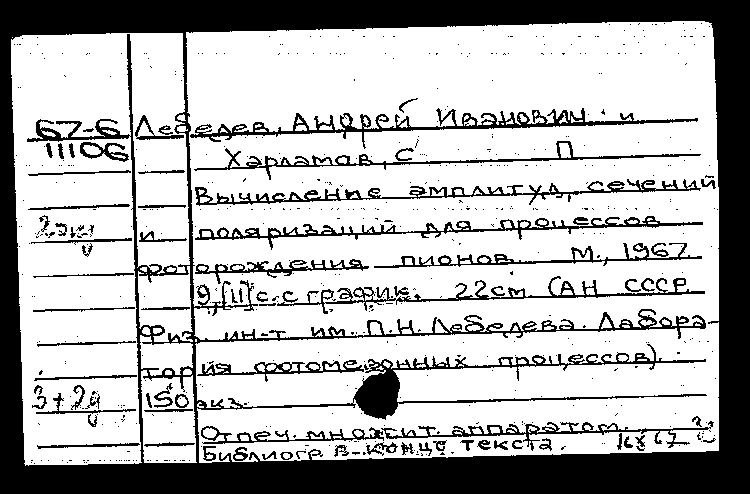 67-6 Лебедев, Андрей Иванович и
11106 Харламов, С П
Вычисление амплитуд, сечений
2экз и поляризаций для процессов
фоторождения пионов. М., 1967.
9,[11]с. с график. 22см. (АН СССР.
Физ. ин-т им. П.Н. Лебедева. Лабора-
тория фотомезонных процессов).
3+2д 150 экз.
Отпеч. множит. аппаратом.
Библиогр в конце текста.